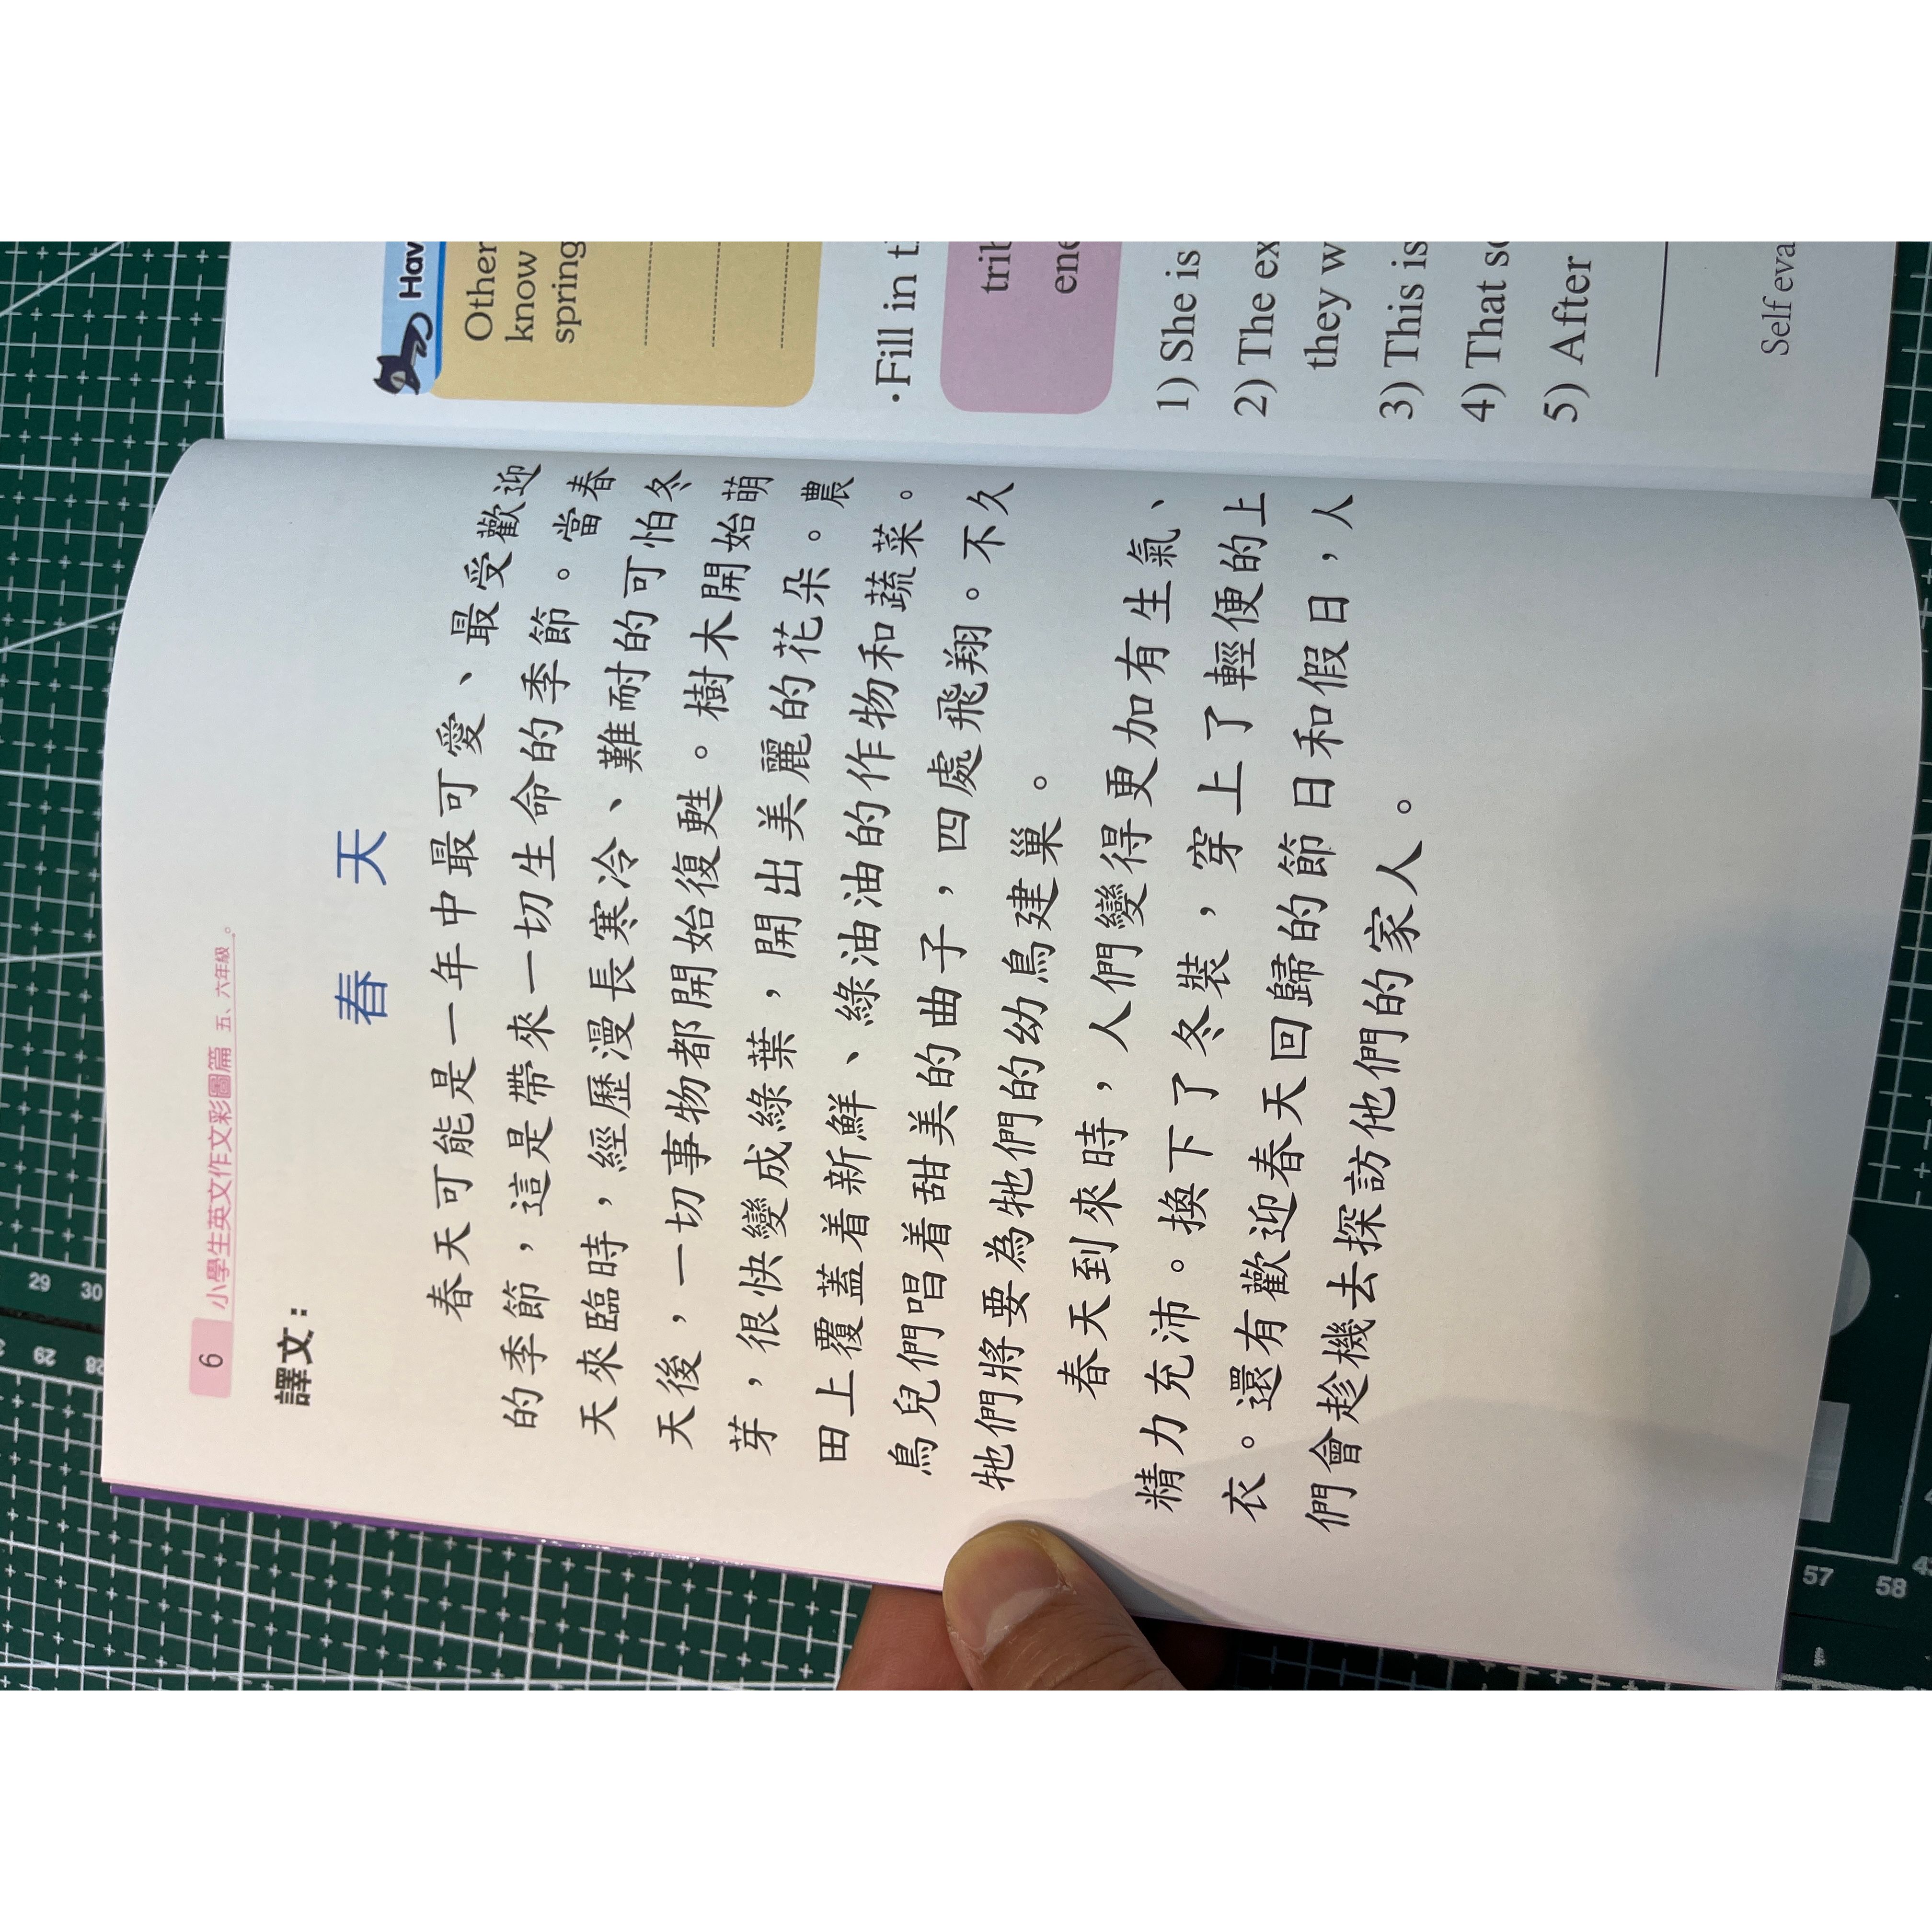 6
小學生英文作文彩圖篇 五、六年級。
譯文：
春 天
春天可能是一年中最可愛、最受歡迎
的季節，這是帶來一切生命的季節。當春
天來臨時，經歷漫長寒冷、難耐的可怕冬
天後，一切事物都開始復甦。樹木開始萌
芽，很快變成綠葉，開出美麗的花朵。農
田上覆蓋着新鮮、綠油油的作物和蔬菜。
鳥兒們唱着甜美的曲子，四處飛翔。不久
牠們將要為牠們的幼鳥建巢。
春天到來時，人們變得更加有生氣、
精力充沛。換下了冬裝，穿上了輕便的上
衣。還有歡迎春天回歸的節日和假日，人
們會趁機去探訪他們的家人。
Hav
Other
know
spring
·Fill in t
trib
ene
1) She is
2) The ex
they w
3) This is
4) That s
5) After
Self eva
29
30
29
28
57
58